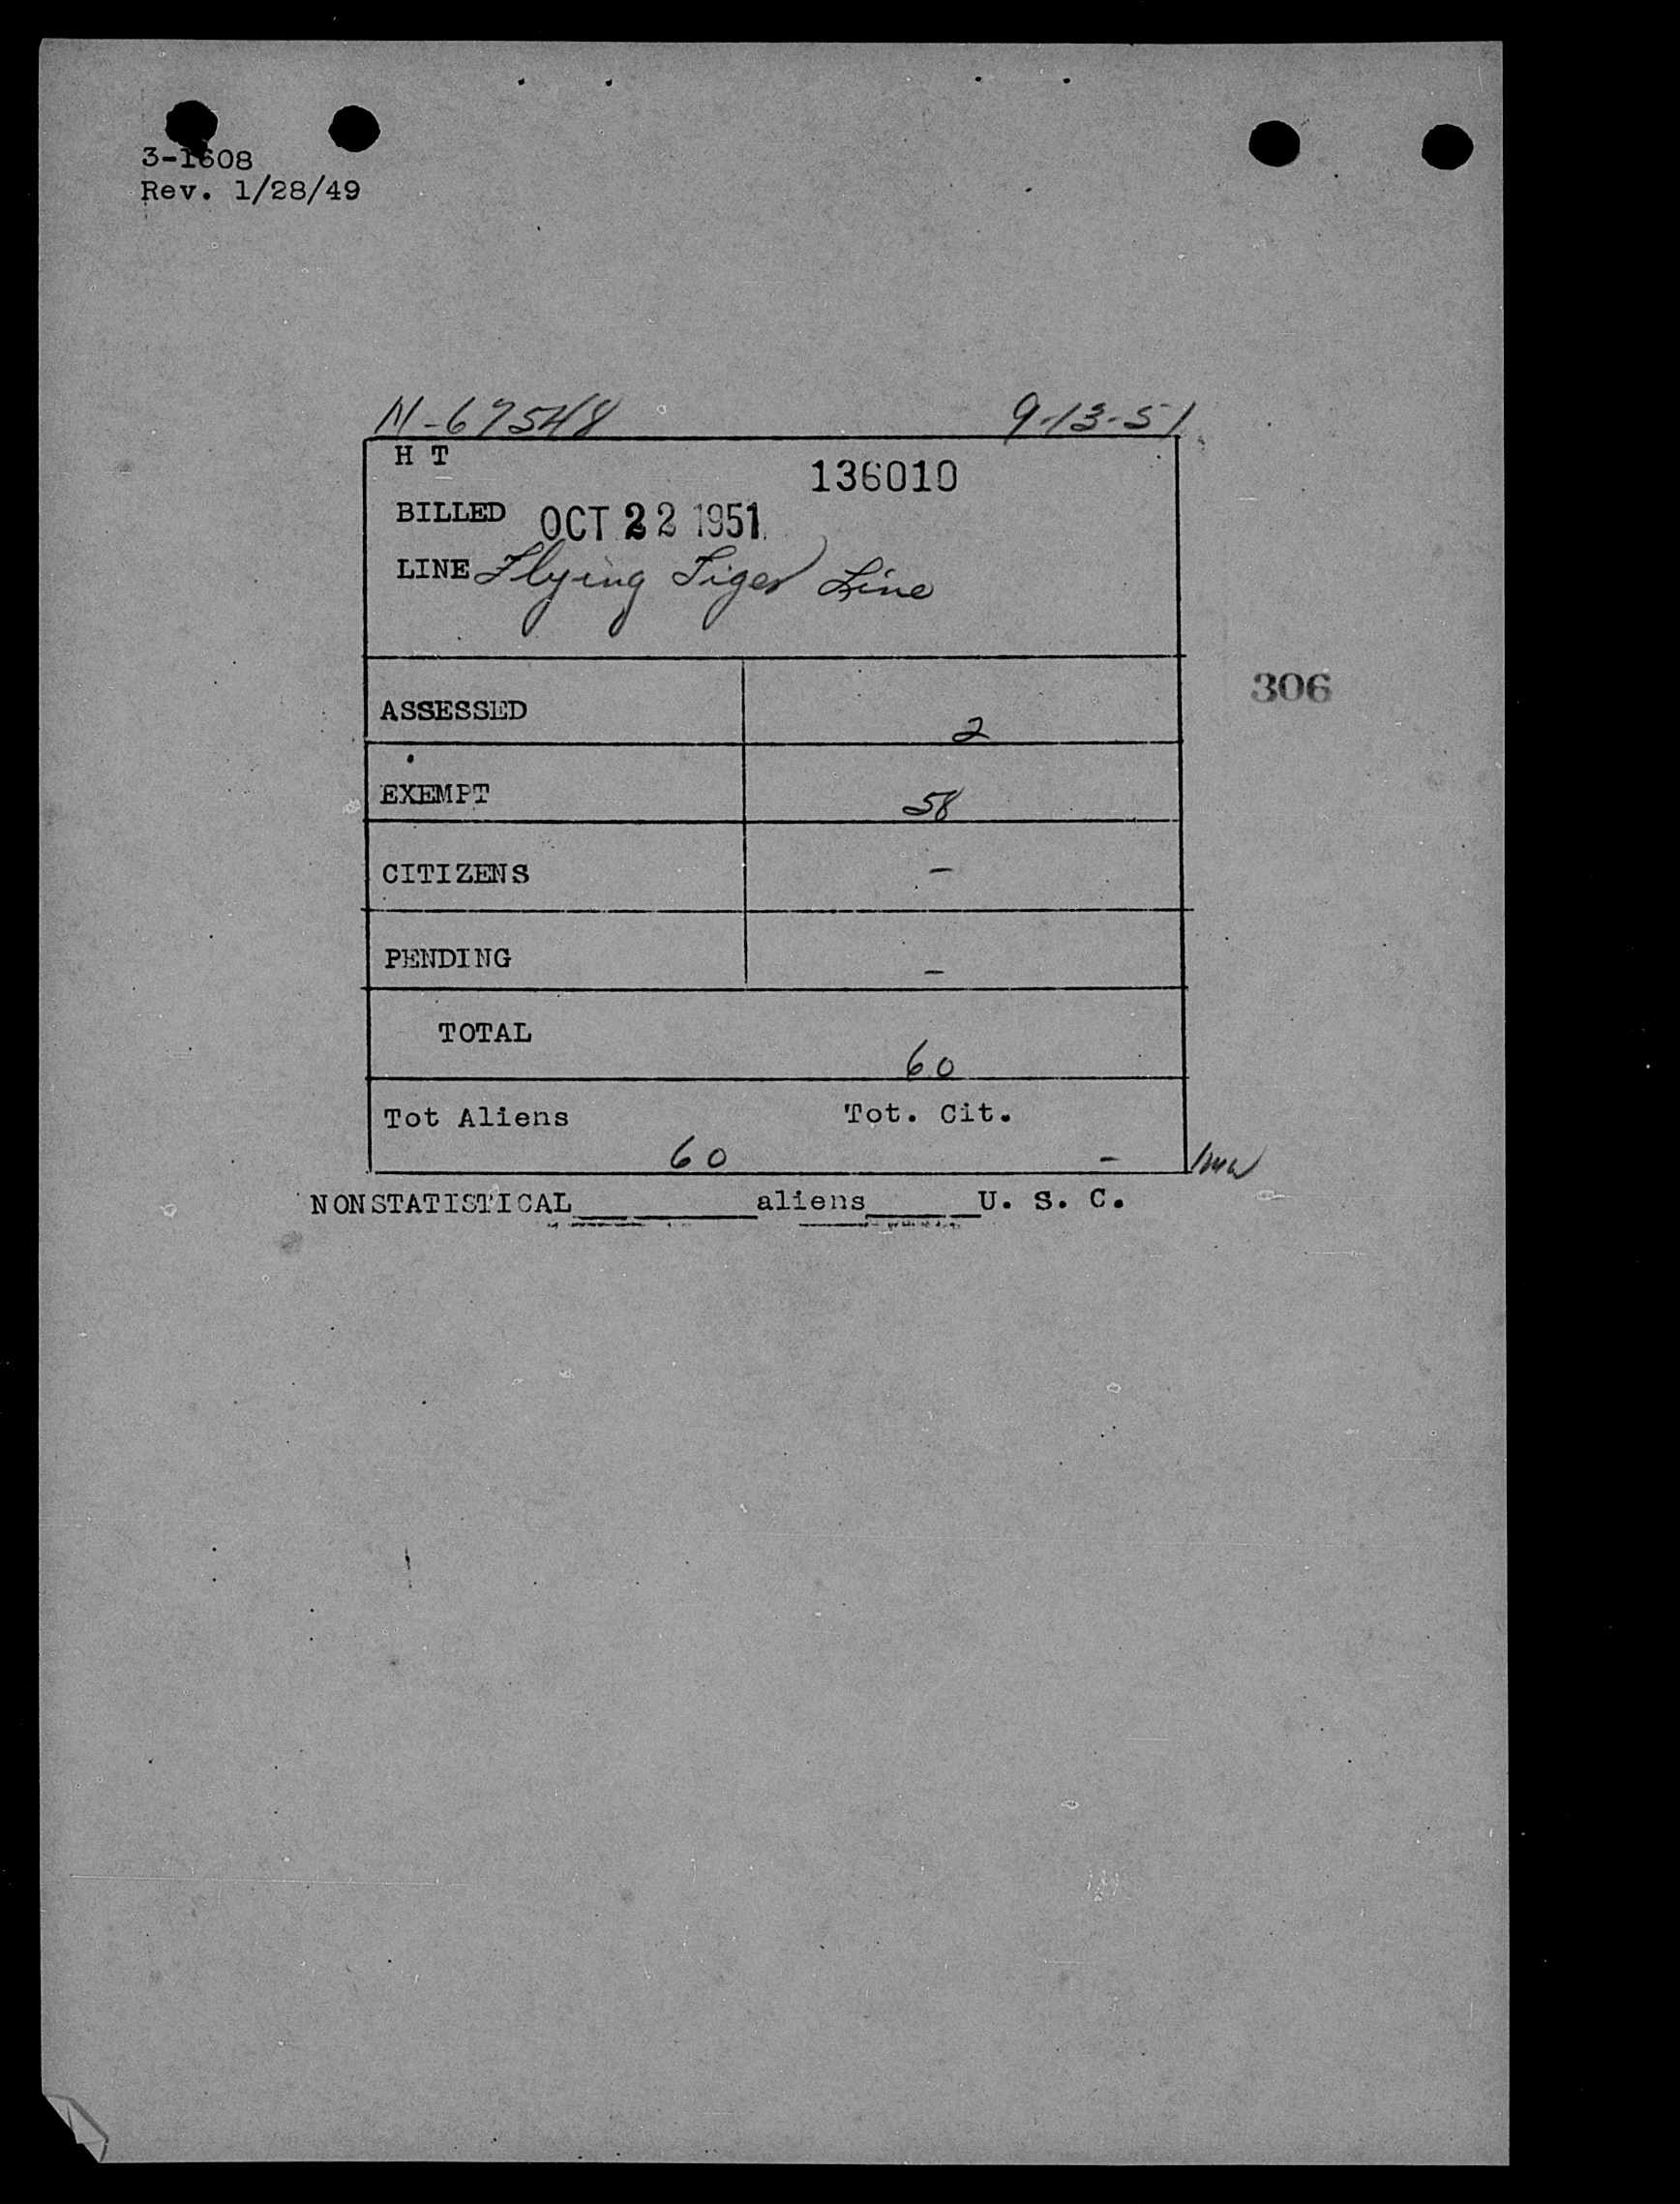 3-1608
Rev. 1/28/49
M-67548 9-13-51
H T
136010
BILLED OCT 22 1951
LINE Flying Tiger Line
306
ASSESSED 2
EXEMPT 58
CITIZENS -
PENDING -
TOTAL 60
Tot Aliens 60 Tot. Cit. -
NONSTATISTICAL__________aliens______U. S. C.